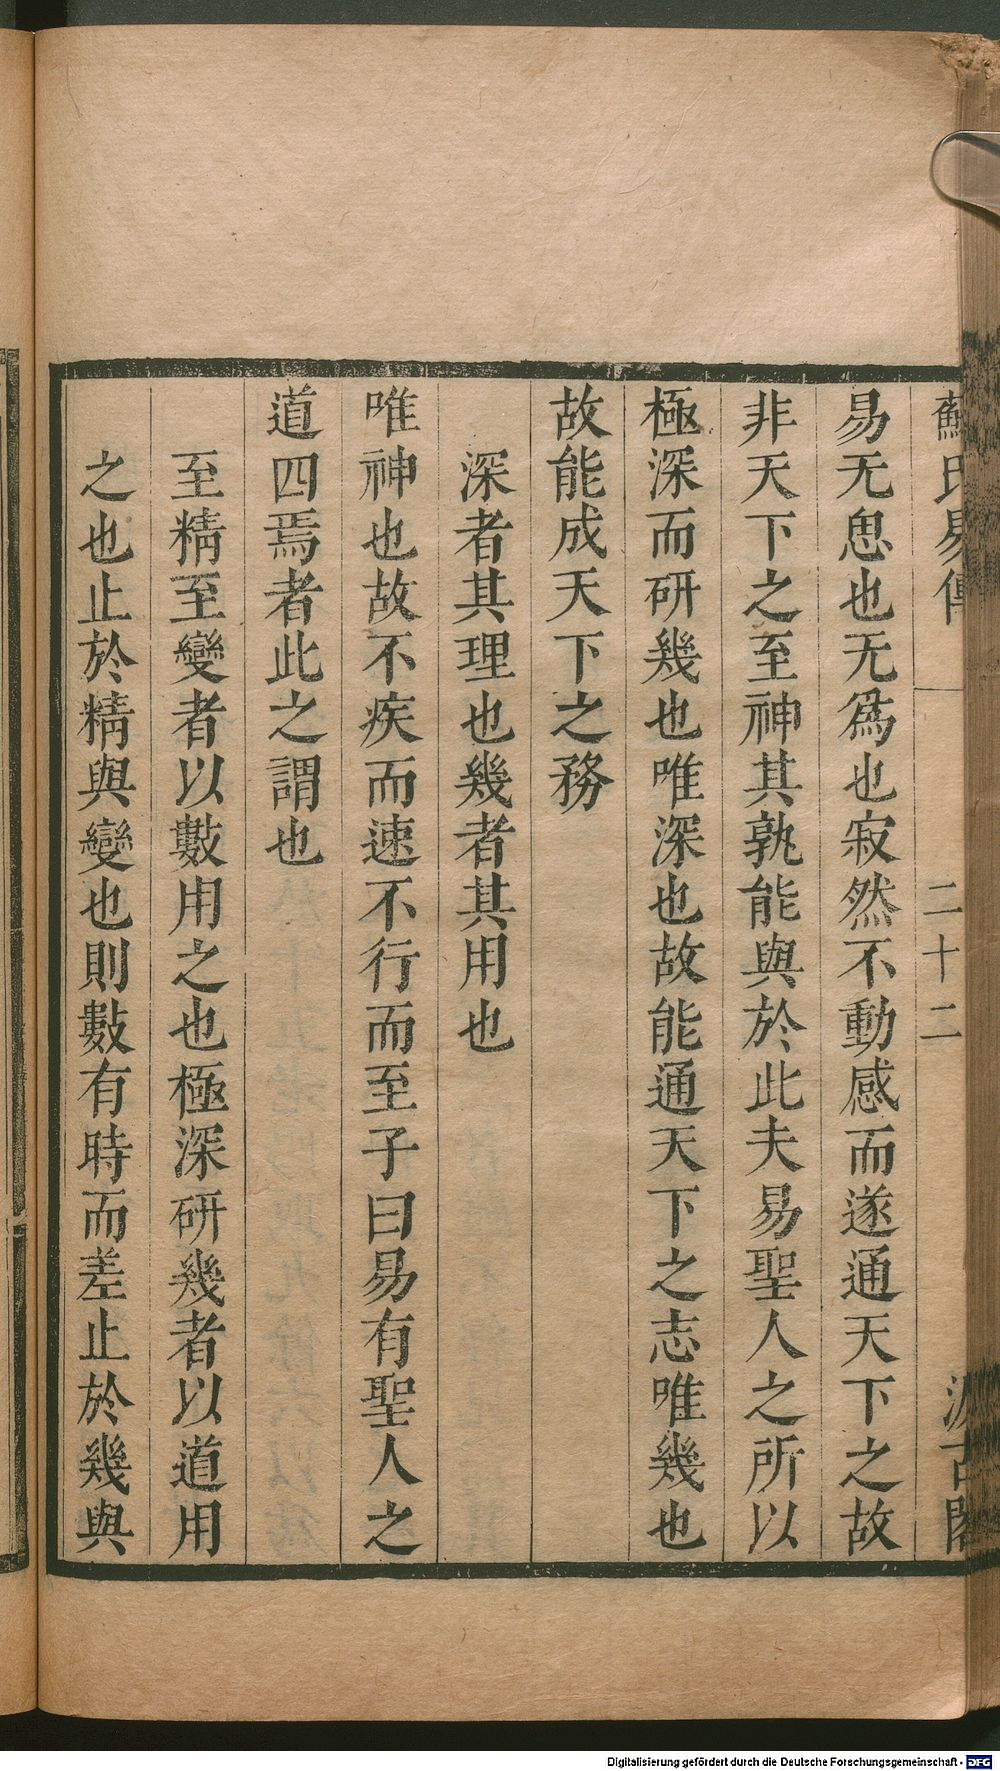 蘇氏易傳 二十二 汲古閣
易无思也无爲也寂然不動感而遂通天下之故
非天下之至神其孰能與於此夫易聖人之所以
極深而研幾也唯深也故能通天下之志唯幾也
故能成天下之務
深者其理也幾者其用也
唯神也故不疾而速不行而至子曰易有聖人之
道四焉者此之謂也
至精至變者以數用之也極深研幾者以道用
之也止於精與變也則數有時而差止於幾與
Digitalisierung gefördert durch die Deutsche Forschungsgemeinschaft - DFG